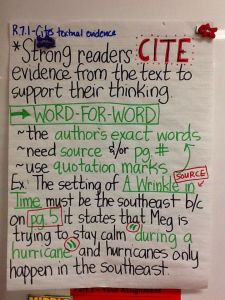 R.7.1-Cites textual evidence
*Strong readers CITE
evidence from the text to
support their thinking.
→ WORD-FOR-WORD
~the author's exact words
~need source &/or pg #
~use quotation marks
SOURCE
Ex: The setting of A Wrinkle in
Time must be the southeast b/c
on pg. 5 it states that Meg is
trying to stay calm "during a
hurricane" and hurricanes only
happen in the southeast.